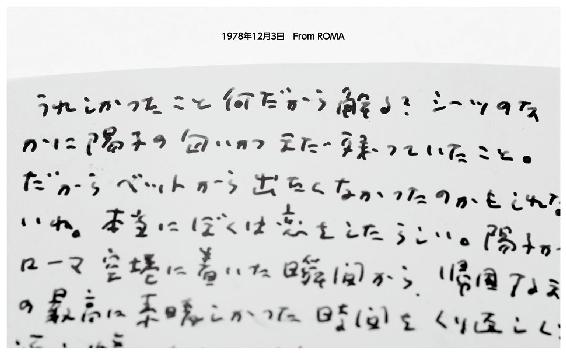 1978年12月3日 From ROMA
うれしかったこと何だから解る? シーツのな
かに陽子の匂いがまだ残っていたこと。
だからベットから出たくなかったのかもしれな
いね。本当にぼくは恋をしたらしい。陽子が
ローマ空港に着いた瞬間から、帰国するま
の最高に素晴しかった時間をくり返しく